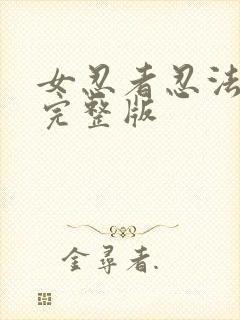 女忍者忍法
完整版
金尋者.